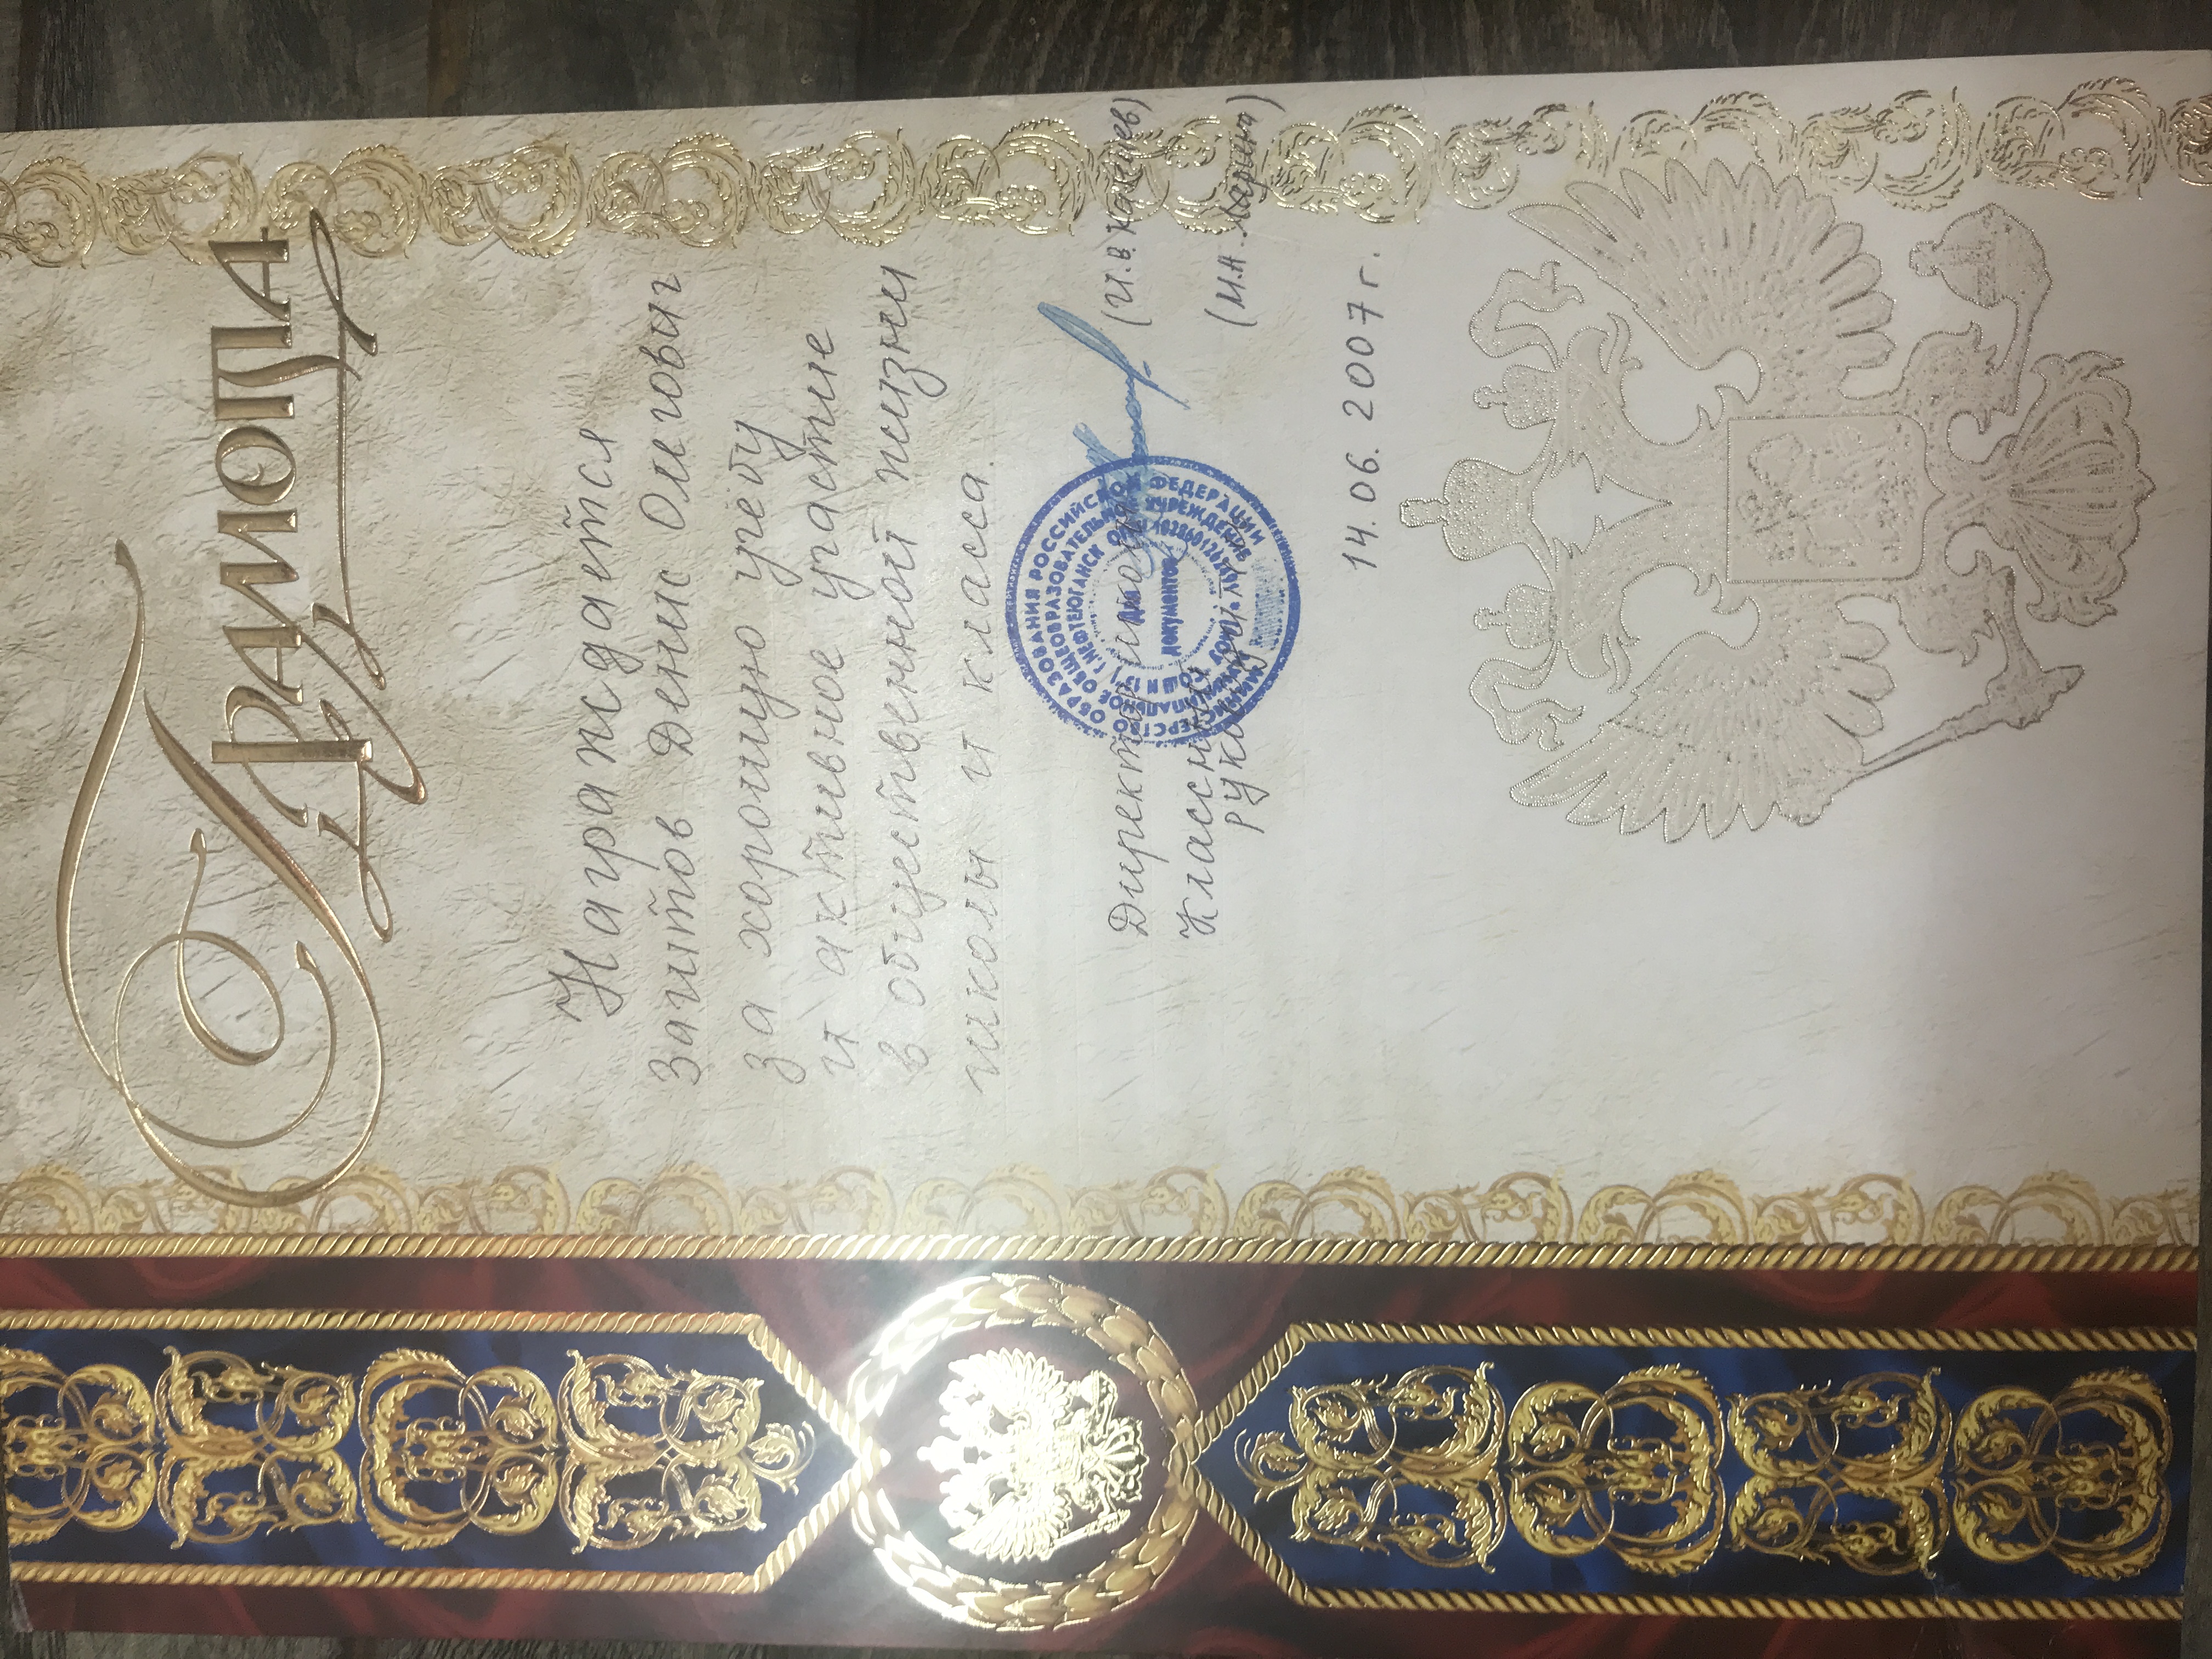 Грамота
Награждается
Загитов Денис Олегович
за хорошую учёбу
и активное участие
в общественной жизни
школы и класса.
Директор школы
(И.В.
Классный
руководитель
(М.А. Ларина)
14.06.2007 г.
МИНИСТЕРСТВО ОБРАЗОВАНИЯ РОССИЙСКОЙ ФЕДЕРАЦИИ
МУНИЦИПАЛЬНОЕ ОБЩЕОБРАЗОВАТЕЛЬНОЕ УЧРЕЖДЕНИЕ
Г.НЕФТЕЮГАНСК
Для
документов